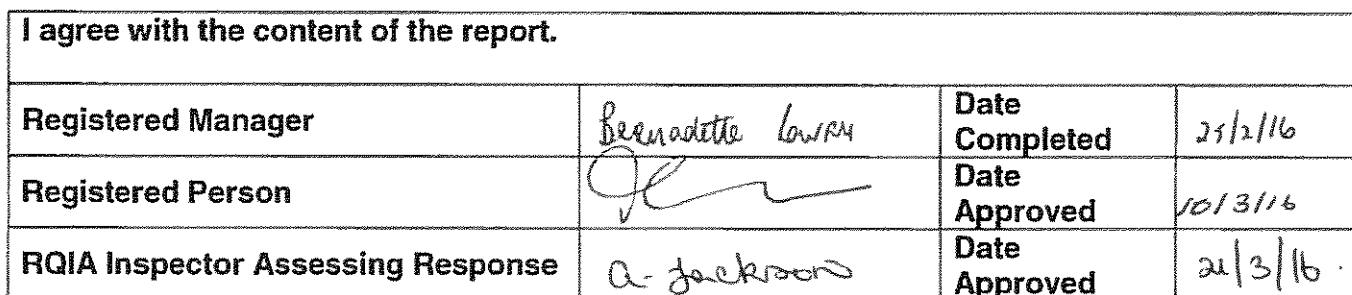 I agree with the content of the report.
Registered Manager Bernadette Lowry Date Completed 25/2/16
Registered Person Date Approved 10/3/16
RQIA Inspector Assessing Response A. Jackson Date Approved /3/16